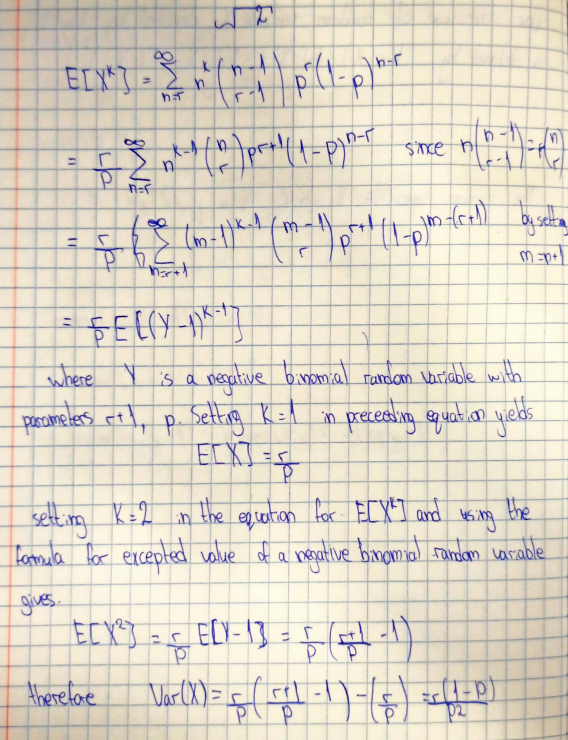 √2
E[X^k] = ∑_{n=r}^{∞} n^k (n-1 r-1) p^r (1-p)^{n-r}
= r/p ∑_{n=r}^{∞} n^{k-1} (n r) p^{r+1} (1-p)^{n-r} since n(n-1 r-1) = r(n r)
= r/p ∑_{m=r+1}^{∞} (m-1)^{k-1} (m-1 r) p^{r+1} (1-p)^{m-(r+1)} by setting
m=n+1
= r/p E[(Y-1)^{k-1}]
where Y is a negative binomial random variable with
parameters r+1, p. Setting K=1 in preceeding equation yields
E[X] = r/p
setting K=2 in the equation for E[X^k] and using the
formula for excepted value of a negative binomial random variable
gives.
E[X^2] = r/p E[Y-1] = r/p (r+1/p - 1)
therefore Var(X) = r/p (r+1/p - 1) - (r/p) = r(1-p)/p2